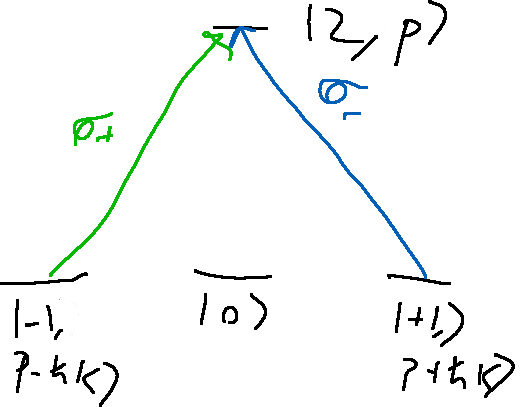 |2, p⟩
σ+
σ-
|-1,
p-ħk⟩
|0⟩
|+1,⟩
p+ħk⟩